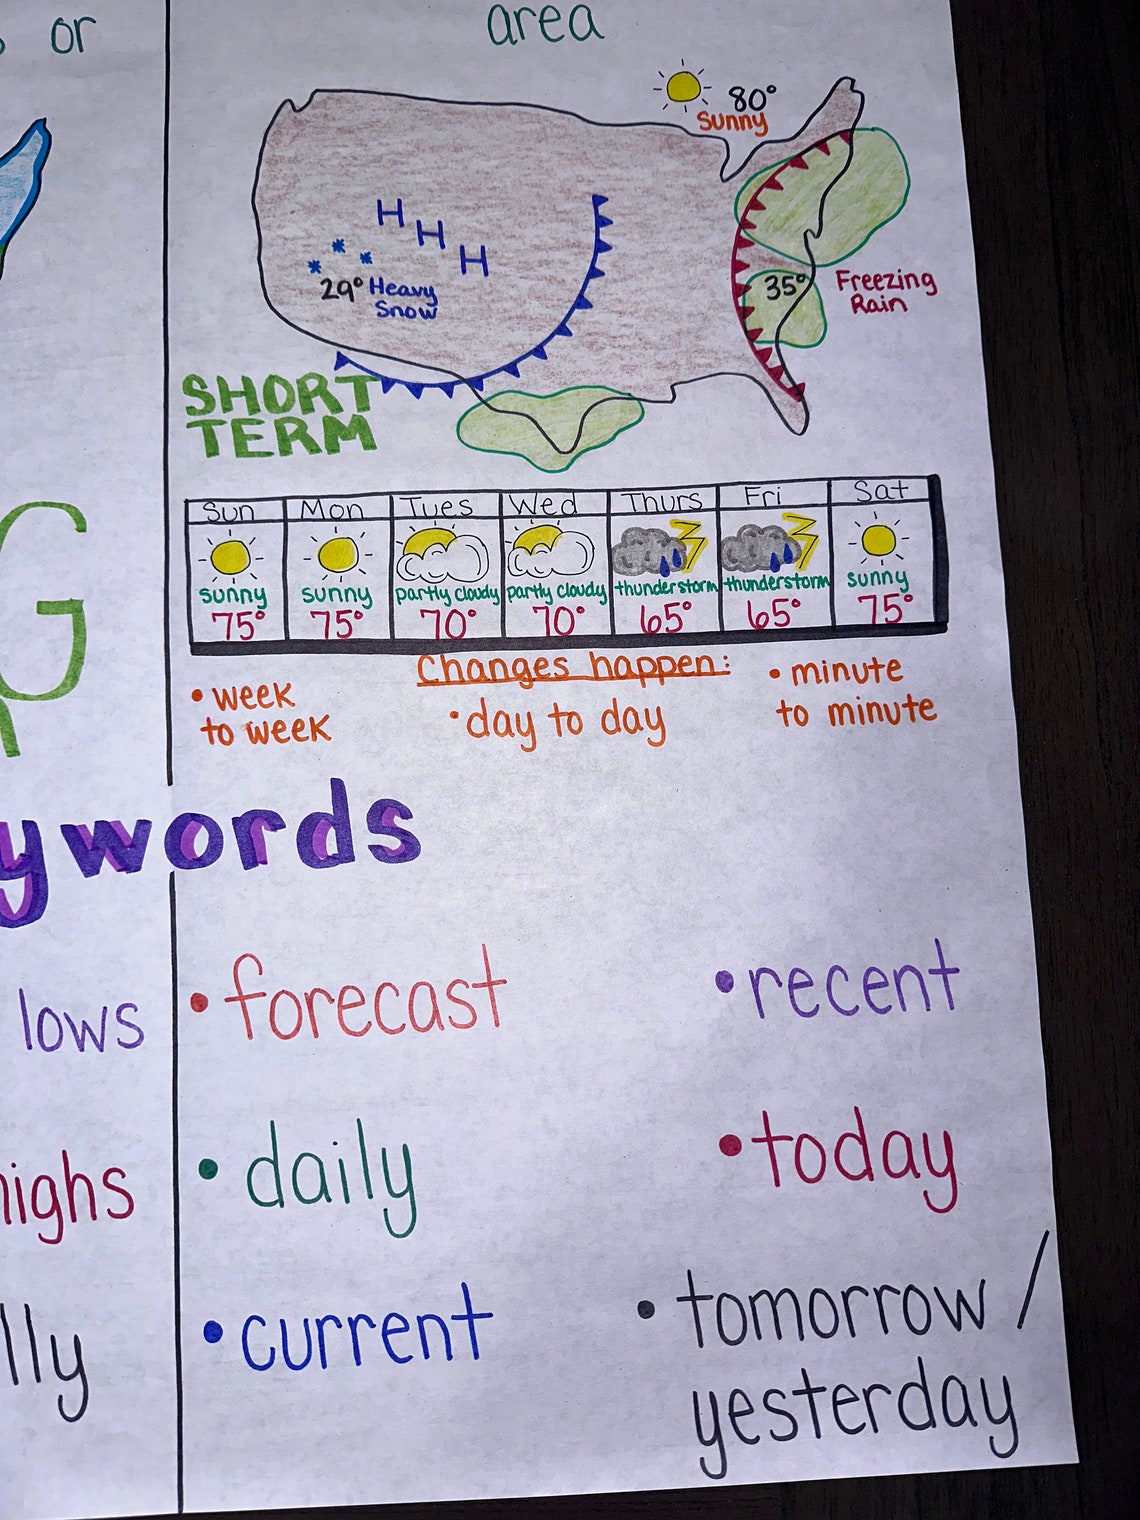 or
area
80°
Sunny
H H H
29° Heavy
Snow
35°
Freezing
Rain
SHORT
TERM
G
Sun Mon Tues Wed Thurs Fri Sat
sunny sunny partly cloudy partly cloudy thunderstorm thunderstorm sunny
75° 75° 70° 70° 65° 65° 75°
Changes happen:
• week
to week
• day to day
• minute
to minute
ywords
lows
• forecast
• recent
highs
• daily
• today
lly
• current
• tomorrow /
yesterday